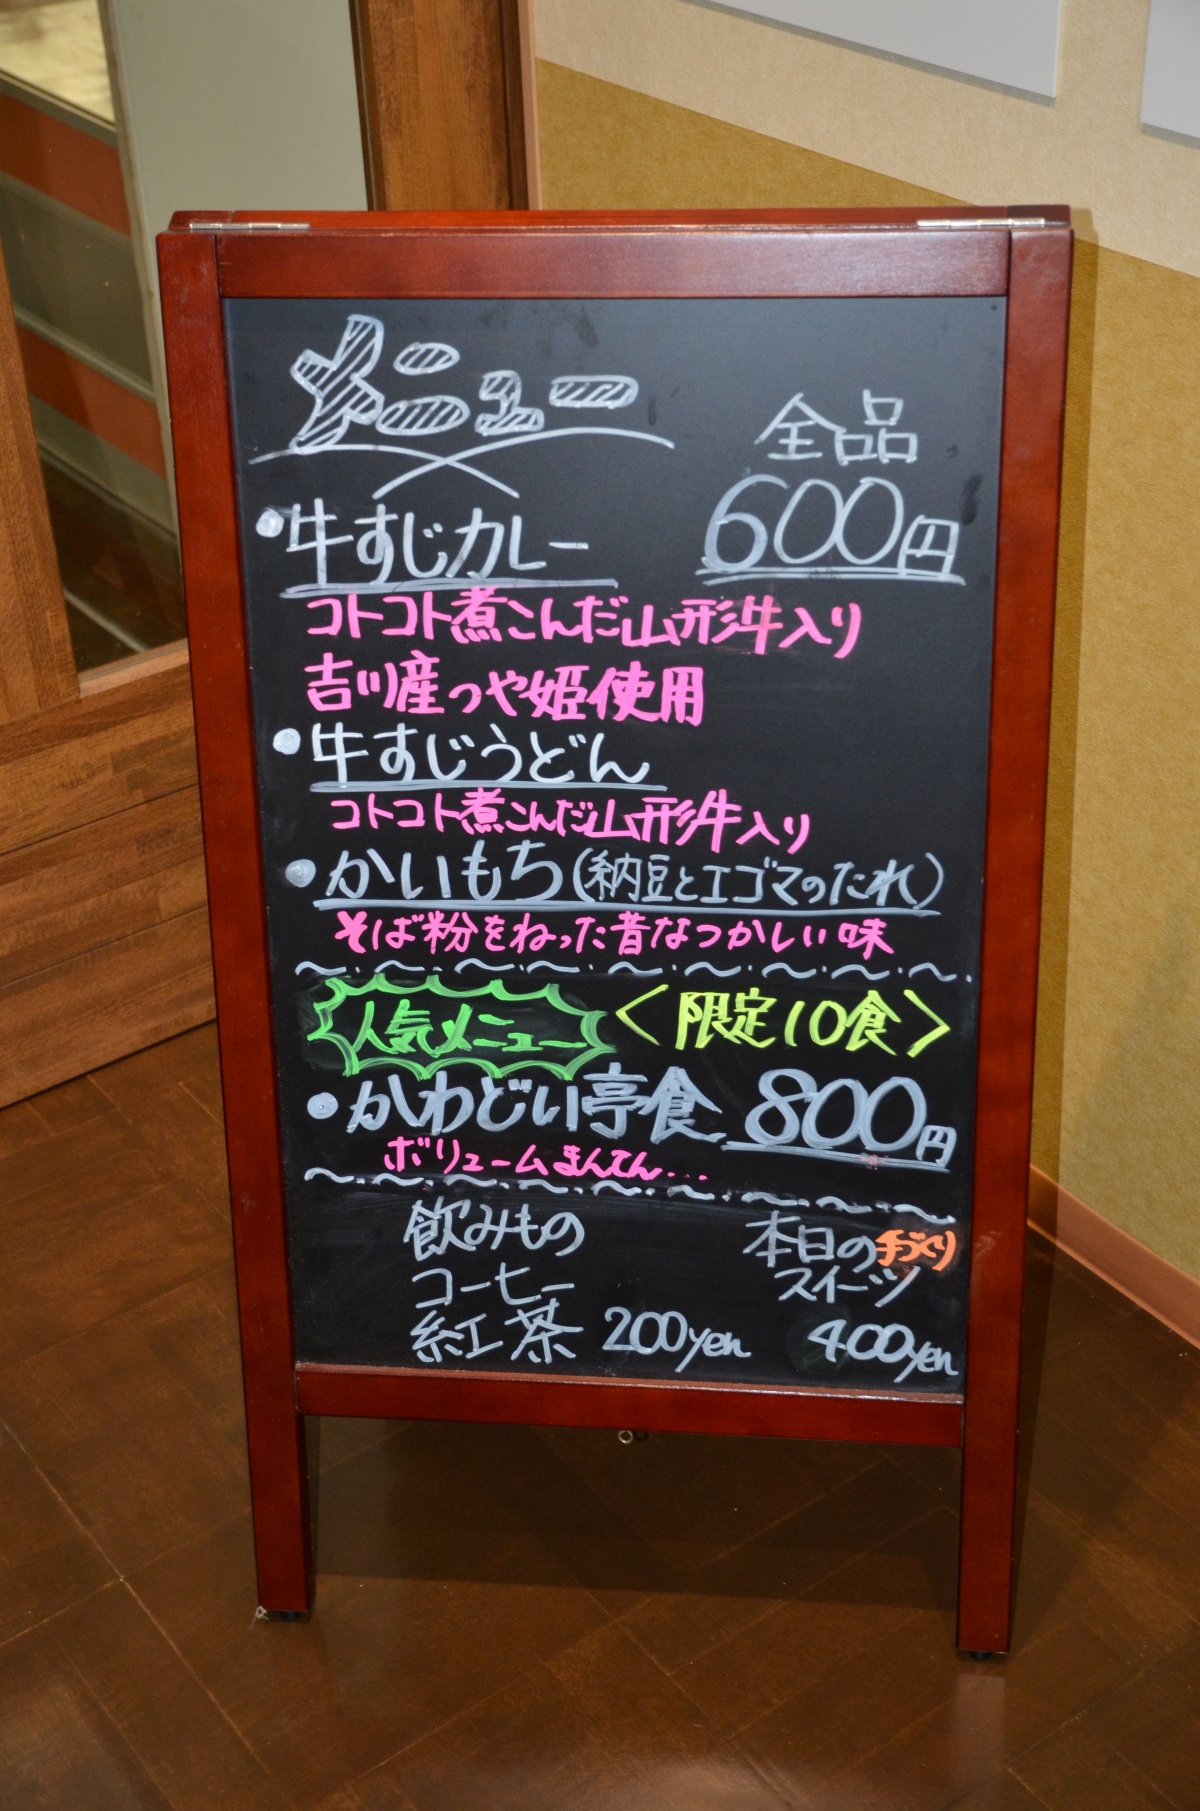 メニュー
全品
600円
・牛すじカレー
コトコト煮こんだ山形牛入り
吉川産つや姫使用
・牛すじうどん
コトコト煮こんだ山形牛入り
・かいもち(納豆とエゴマのたれ)
そば粉をねった昔なつかしい味
人気メニュー
<限定10食>
・かわどい亭食 800円
ボリュームまんてん...
飲みもの
コーヒー
紅茶 200yen
本日の手づくり
スイーツ
400yen